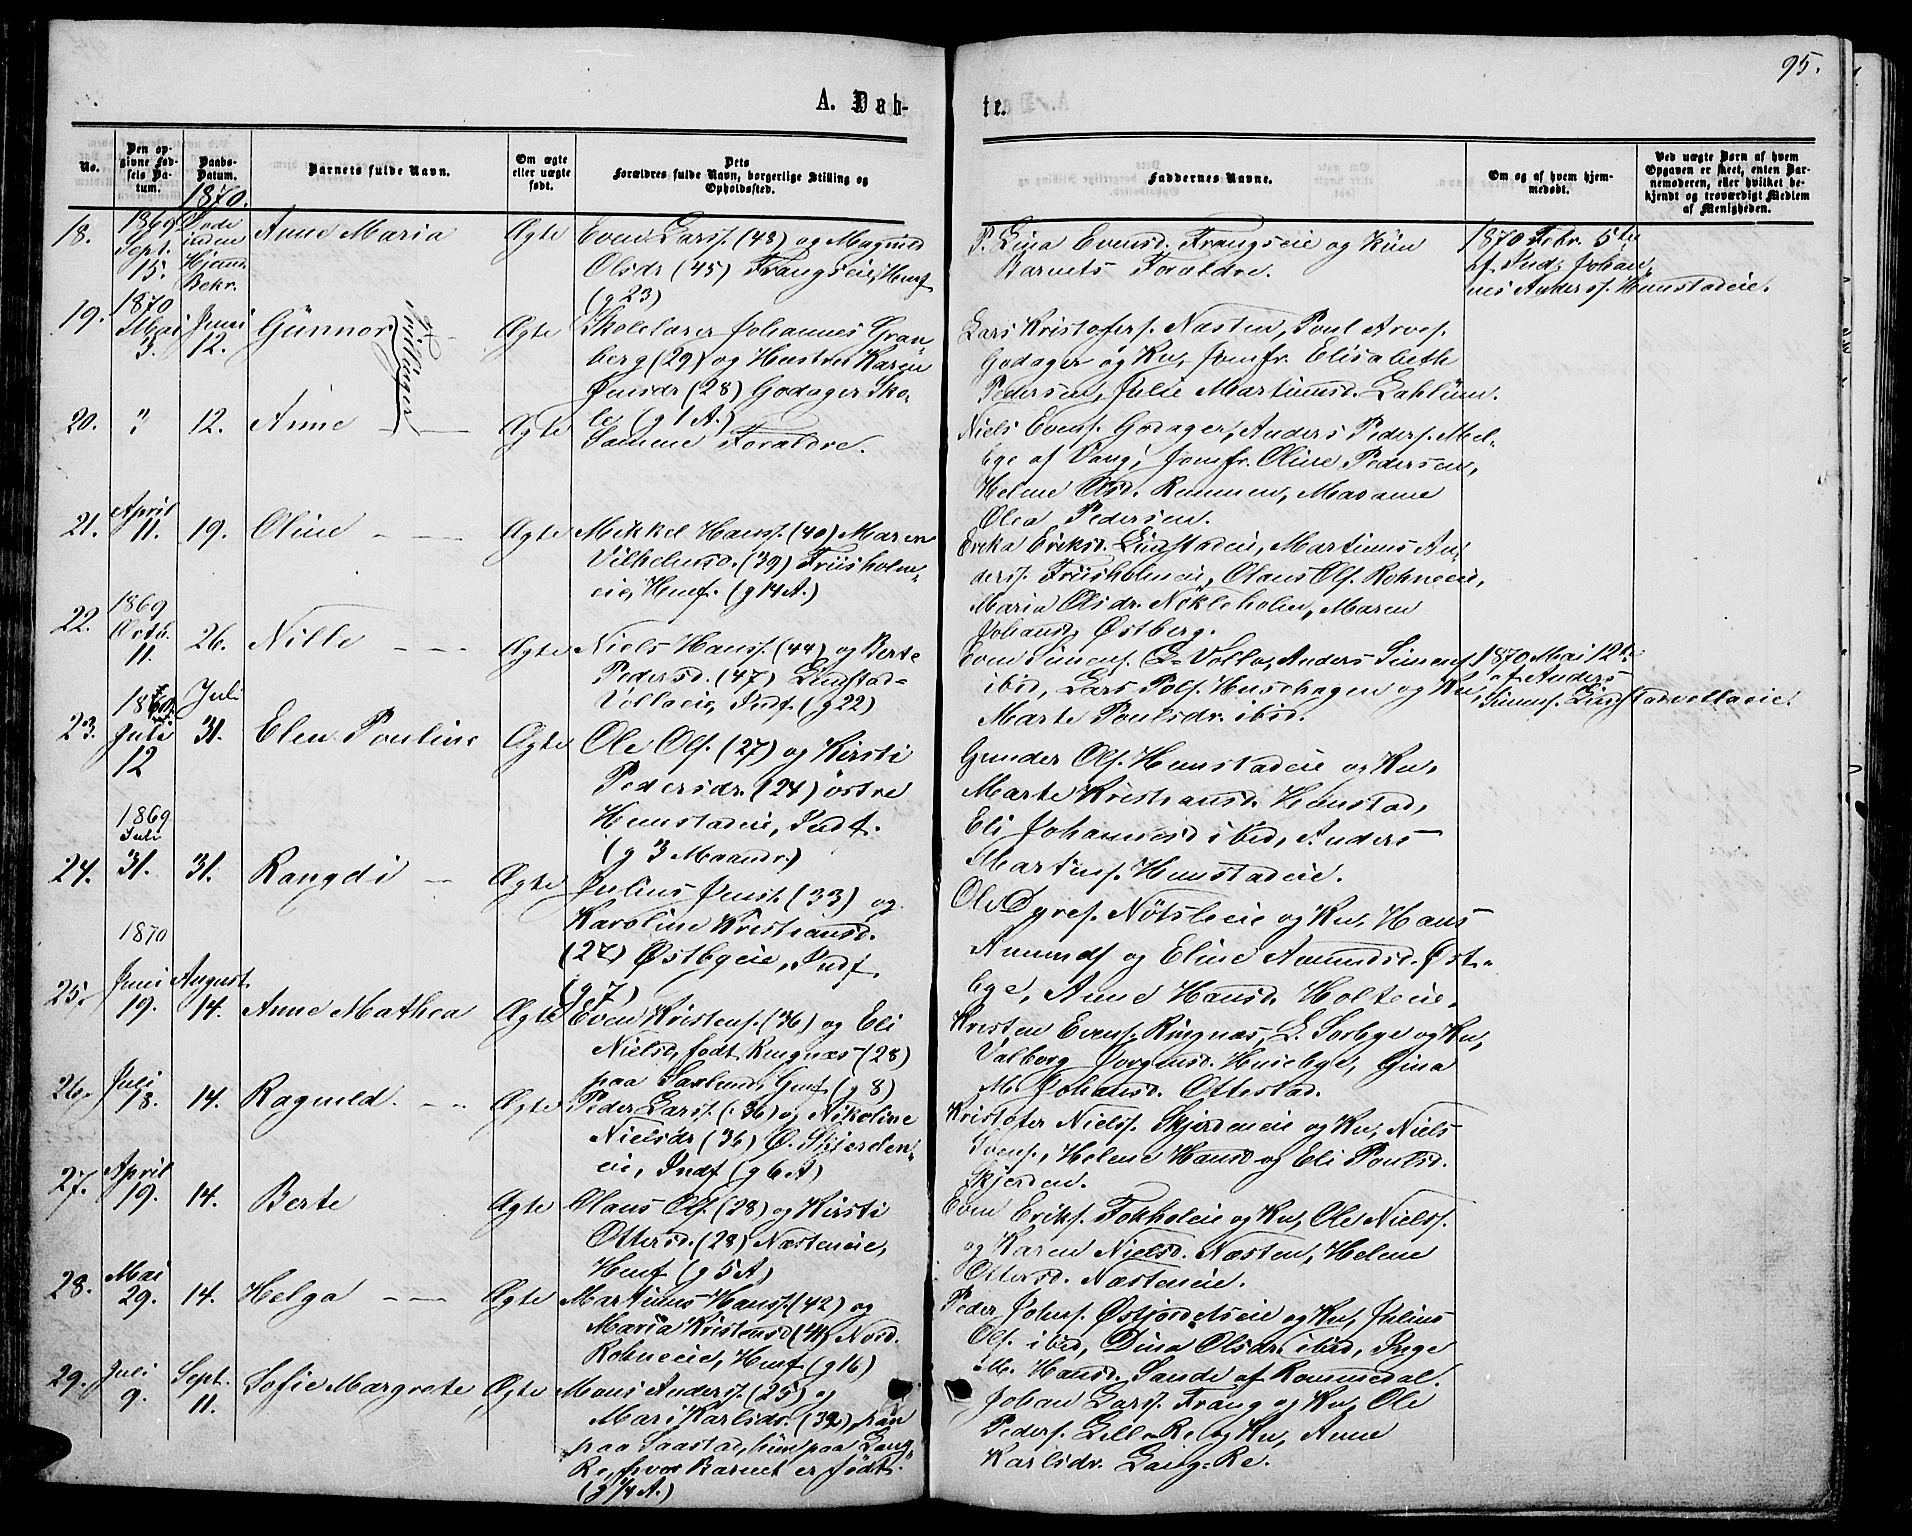 95.
A. Døb-
te.
No.
Den op-
givne Fød-
sels Da-
tum.
Daabs-
Datum.
1870.
Barnets fulde Navn.
Om ægte
eller uægte
født.
Dets
Forældres fulde Navn, borgerlige Stilling og
Opholdssted.
Faddernes Navne.
Om og af hvem hjem-
medøbt.
Ved uægte Børn af hvem
Opgaven er skeet, enten Bar-
nemoderen, eller hvilket be-
kjendt og troværdigt Medlem
af Menigheden.
18.
1869
Sept.
15.
Døde
uden
Hjem.
Bekr.
Anne Maria
Ægte
Even Larsf. (43) og Magnild
Olsdr (45) Frangseie, Hemf
(g 23)
P. Lina Evensd. Frangseie og Kun
Barnets Forældre.
1870 Febr. 5te
af Ind. Johan-
nes Andersf. Hemstadeie.
19.
1870
Mai
3.
Juni
12.
Gunnor
Tvillinger
Ægte
Skolelærer Johannes Gran-
berg (29) og Hustru Karen
Jensdr (28) Godager Sko-
le (g 1 A.)
Lars Kristofersf. Næsten, Poul Arvesf.
Godager og Ku, Jomfr. Elisabeth
Pedersen, Julie Martinusd. Lahlum.
20.
"
12.
Anne
Ægte
Samme Forældre.
Niels Evensf. Godager, Anders Pedersf. Mel-
bye af Vang, Jomfr. Oline Pedersen,
Helene Olsd. Remmen, Madame
Olea Pedersen.
21.
April
11.
19.
Oline
Ægte
Mikkel Hansf. (40) Maren
Vilhelmsd. (39) Friisholm-
eie, Hemf. (g 14 A.)
Erika Eriksd. Lindstadeie, Martinus An-
dersf. Friisholmeie, Olaus Olsf. Rohneeie,
Maria Olsdr. Nökleholm, Maren
Johansd. Østberg.
22.
1869
Octb.
11.
26.
Nille
Ægte
Niels Hansf. (44) og Berte
Pedersd. (47) Lindstad-
Vollaeie, Indf. (g 22)
Even Simensf. L-Volla, Anders Simensf.
ibid, Lars Polsf. Husdhagen og Ku,
Marte Poulsdr. ibid.
1870 Mai 12te
af Anders
Simensf. Lindstadvollaeie.
23.
Juli
12
Juli
31.
Elen Pouline
Ægte
Ole Olsf. (27) og Kirsti
Pedersdr. (24) østre
Hemstadeie, Indf.
(g 3 Maandr.)
Gunder Olsf. Hemstadeie og Ku,
Marte Kristiansd. Hemstad,
Eli Johannesd ibid, Anders
Martinsf. Hemstadeie.
24.
1869
Juli
31.
31.
Rangdi
Ægte
Julius Jensf. (33) og
Karoline Kristiansd.
(27) Østbyeie, Indf.
(g 7)
Ole Dyresf. Nötsleie og Ku, Hans
Amundsf og Eline Amundsd. Øst-
bye, Anne Hansd. Holteie.
25.
1870
Juni
19.
August
14.
Anne Mathea
Ægte
Even Kristensf. (36) og Eli
Nielsd, født Ringnæs (28)
paa Saxlund, Hemf. (g 8)
Kristen Evensf. Ringnæs, L. Sørbye og Ku,
Valborg Jørgensd. Huusebye, Gina
M. Johansd. Ottestad.
26.
Juli
18.
14.
Ragnild
Ægte
Peder Larsf. (36) og Nikoline
Nielsdr (36) Ø. Skjerden-
eie, Indf (g 6 A)
Kristofer Nielsf. Skjerdeneie og Ku, Niels
Svensf., Helene Hansd og Eli Poulsd.
Skjerden.
27.
April
19.
14.
Berte
Ægte
Olaus Olsf. (28) og Kirsti
Ottersd. (28) Næsteneie,
Hemf (g 5 A)
Even Eriksf. Fokholeie og Ku, Ole Nielsf.
og Karen Nielsd. Næsten, Helene
Ottersd. Næsteneie.
28.
Mai
29.
14.
Helga
Ægte
Martinus Hansf. (42) og
Maria Kristensd (41) Nord.
Rohneeie, Hemf (g 16)
Peder Johnsf. Østjordetseie og Ku, Julius
Olsf. ibid, Dina Olsdr. ibid, Inge
M. Hansd. Sande af Rommedal.
29.
Juli
9.
Sept.
11.
Sofie Margrete
Ægte
Mons Andersf. (25) og
Mari Karlsdr. (32), han
paa Saastad, hun paa Lang-
Re, hvor Barnet er født.
(g 1/4 A.)
Johan Larsf. Frang og Ku, Ole
Pedersf. Lill-Re og Ku, Anne
Karlsdr. Lang-Re.